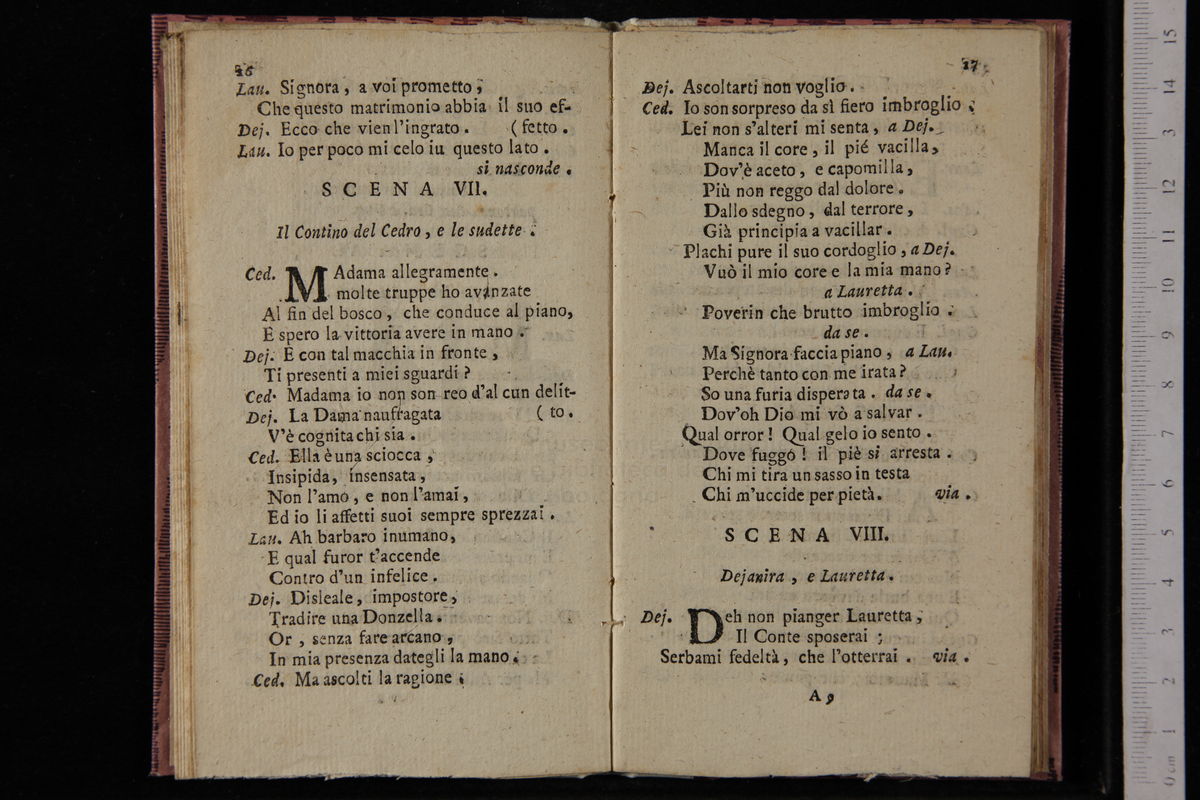 16
Lau. Signora, a voi prometto;
Che questo matrimonio abbia il suo ef-
Dej. Ecco che vien l'ingrato. (fetto.
Lau. Io per poco mi celo iu questo lato.
si nasconde.
SCENA VII.
Il Contino del Cedro, e le sudette.
Ced. MAdama allegramente.
molte truppe ho avanzate
Al fin del bosco, che conduce al piano,
E spero la vittoria avere in mano.
Dej. E con tal macchia in fronte,
Ti presenti a miei sguardi?
Ced. Madama io non son reo d'al cun delit-
Dej. La Dama naufragata (to.
V'è cognita chi sia.
Ced. Ella è una sciocca,
Insipida, insensata,
Non l'amo, e non l'amai,
Ed io li affetti suoi sempre sprezzai.
Lau. Ah barbaro inumano,
E qual furor t'accende
Contro d'un infelice.
Dej. Disleale, impostore,
Tradire una Donzella.
Or, senza fare arcano,
In mia presenza dategli la mano.
Ced. Ma ascolti la ragione.
17
Dej. Ascoltarti non voglio.
Ced. Io son sorpreso da sì fiero imbroglio.
Lei non s'alteri mi senta, a Dej.
Manca il core, il pié vacilla,
Dov'è aceto, e capomilla,
Più non reggo dal dolore.
Dallo sdegno, dal terrore,
Già principia a vacillar.
Plachi pure il suo cordoglio, a Dej.
Vuò il mio core e la mia mano?
a Lauretta.
Poverin che brutto imbroglio.
da se.
Ma Signora faccia piano, a Lau.
Perchè tanto con me irata?
So una furia disperata. da se.
Dov'oh Dio mi vò a salvar.
Qual orror! Qual gelo io sento.
Dove fuggó! il piè si arresta.
Chi mi tira un sasso in testa
Chi m'uccide per pietà. via.
SCENA VIII.
Dejanira, e Lauretta.
Dej. Deh non pianger Lauretta,
Il Conte sposerai;
Serbami fedeltà, che l'otterrai. via.
A 9